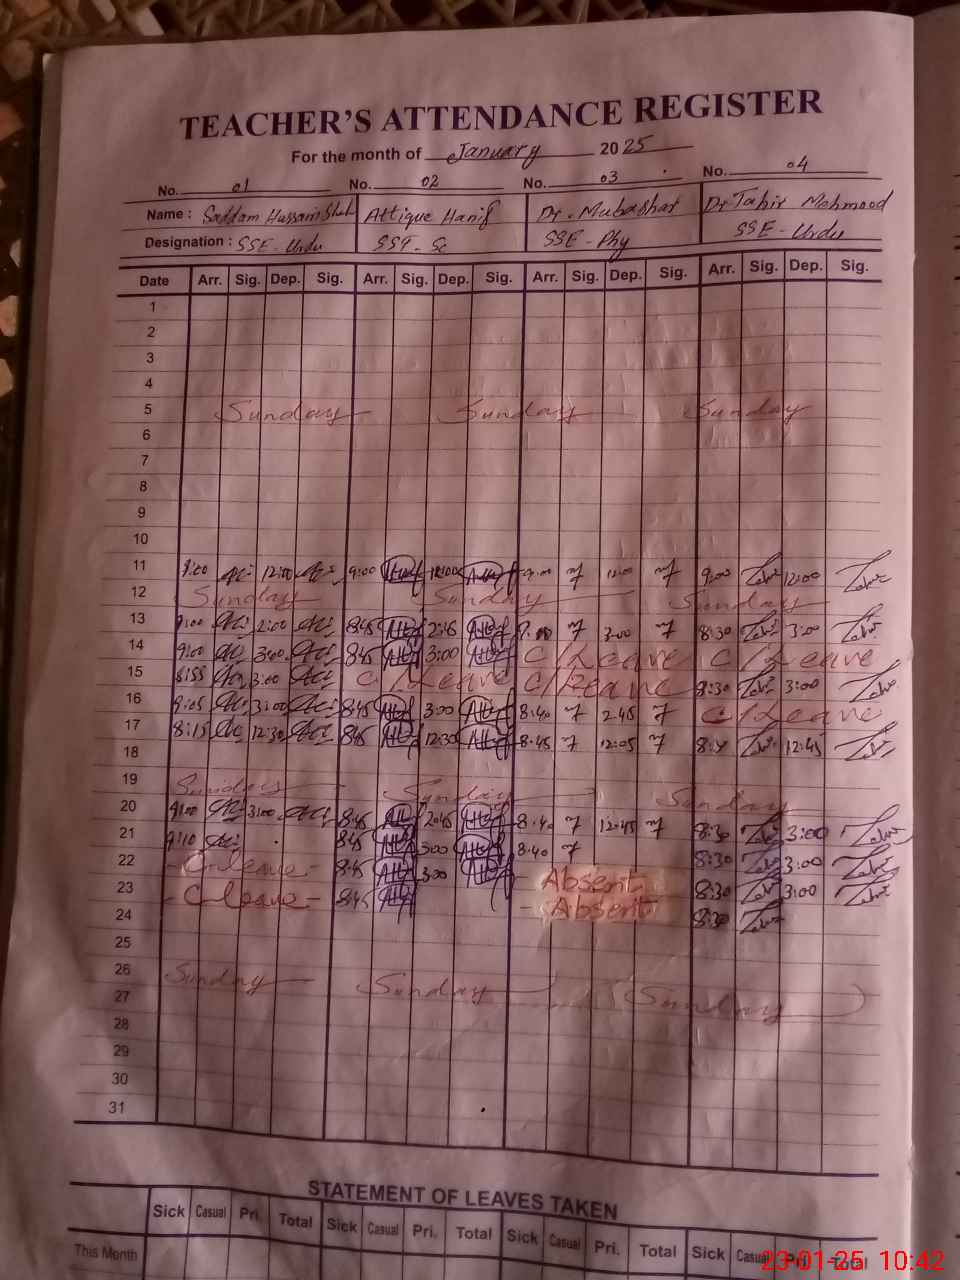 TEACHER'S ATTENDANCE REGISTER
For the month of January 2025
No. 01 No. 02 No. 03 No. 04
Name : Saddam Hussain Shah Attique Hanif Dr. Mubashar Dr Tahir Mehmood
Designation : SSE-Urdu SST-Sc SSE-Phy SSE-Urdu
Date Arr. Sig. Dep. Sig. Arr. Sig. Dep. Sig. Arr. Sig. Dep. Sig. Arr. Sig. Dep. Sig.
1
2
3
4
5 Sunday Sunday Sunday
6
7
8
9
10
11 9:00 12:00 9:00 12:00 9:00 12:00 9:00 12:00
12 Sunday Sunday Sunday
13 9:00 2:00 8:45 2:45 3:00 8:30 3:00
14 9:00 3:00 8:45 3:00 C/Leave C/Leave
15 8:55 3:00 C/Leave C/Leave 8:30 3:00
16 9:05 3:00 8:45 3:00 8:40 2:45 C/Leave
17 8:15 12:30 8:45 12:30 8:45 12:05 12:45
18
19 Sunday Sunday Sunday
20 9:00 3:00 8:45 2:45 8:40 12:45 8:30 3:00
21 9:10 8:45 3:00 8:40 8:30 3:00
22 C leave 8:45 3:00 Absent 8:30 3:00
23 C leave 8:45 Absent 8:30
24
25
26 Sunday Sunday Sunday
27
28
29
30
31
STATEMENT OF LEAVES TAKEN
Sick Casual Pri. Total Sick Casual Pri. Total Sick Casual Pri. Total Sick Casual Pri. Total
This Month
23-01-25 10:42